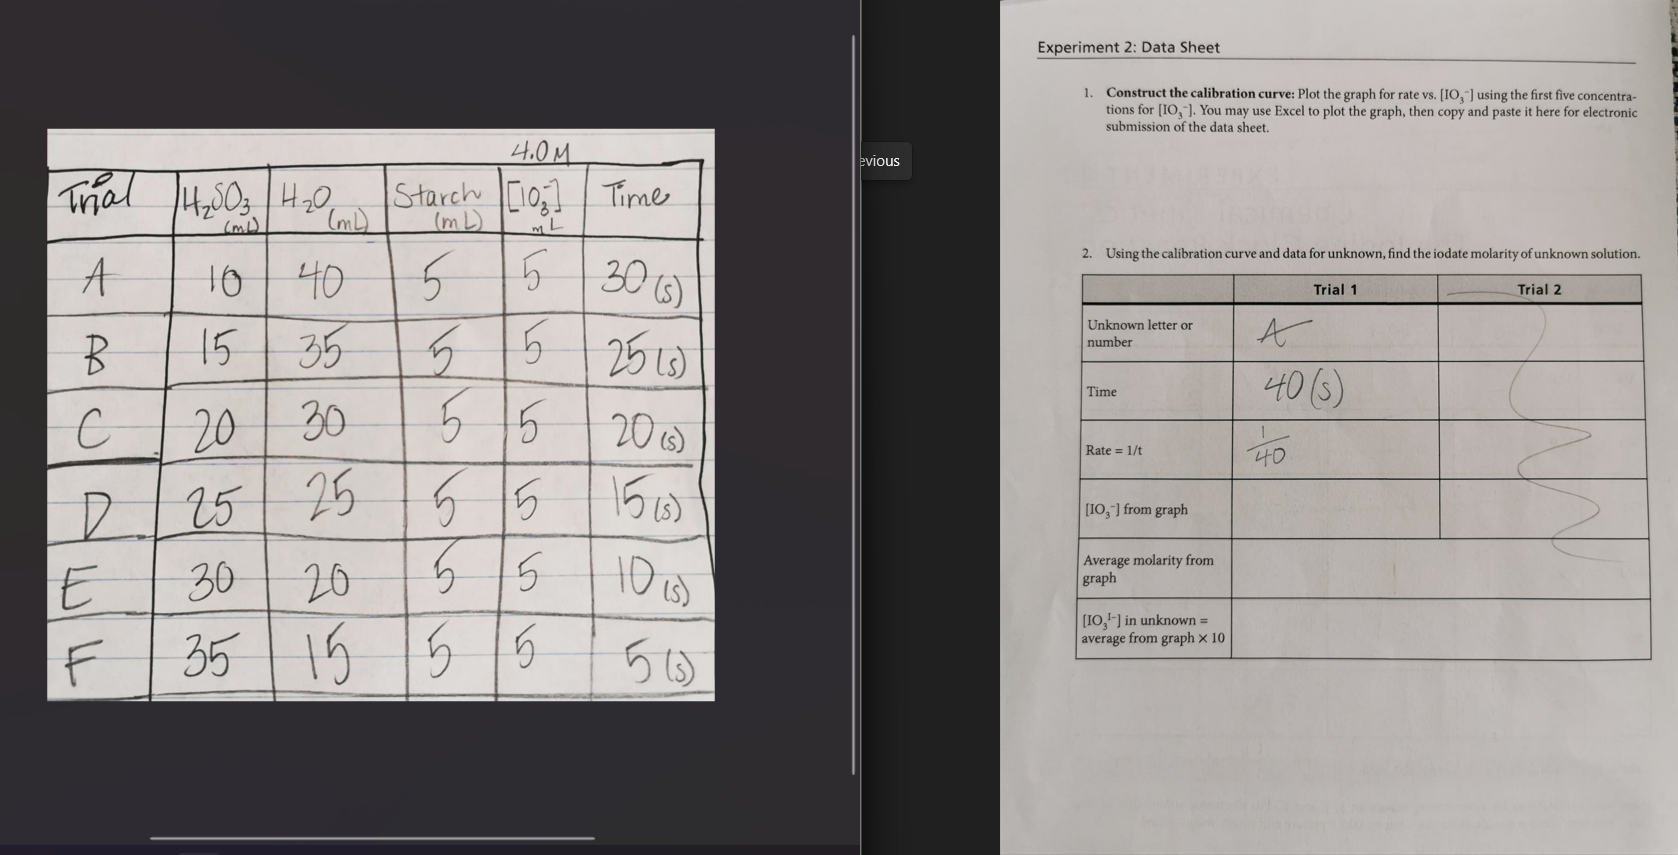 4.0M
Trial H₂SO₃ (mL) H₂O (mL) Starch (mL) [IO₃⁻] mL Time
A 10 40 5 5 30 (s)
B 15 35 5 5 25 (s)
C 20 30 5 5 20 (s)
D 25 25 5 5 15 (s)
E 30 20 5 5 10 (s)
F 35 15 5 5 5 (s)
evious
Experiment 2: Data Sheet
1. Construct the calibration curve: Plot the graph for rate vs. [IO₃⁻] using the first five concentra-
tions for [IO₃⁻]. You may use Excel to plot the graph, then copy and paste it here for electronic
submission of the data sheet.
2. Using the calibration curve and data for unknown, find the iodate molarity of unknown solution.
Trial 1 Trial 2
Unknown letter or
number
A
Time 40(s)
Rate = 1/t 1/40
[IO₃⁻] from graph
Average molarity from
graph
[IO₃¹⁻] in unknown =
average from graph × 10